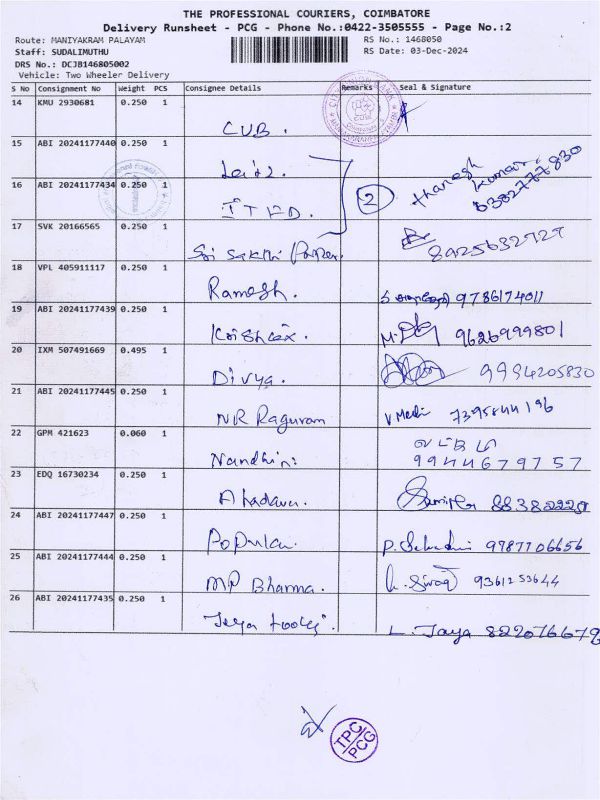 THE PROFESSIONAL COURIERS, COIMBATORE
Delivery Runsheet - PCG - Phone No.:0422-3505555 - Page No.:2
Route: MANIYAKRAM PALAYAM
RS No.: 1468050
Staff: SUDALIMUTHU
RS Date: 03-Dec-2024
DRS No.: DCJB146805002
Vehicle: Two Wheeler Delivery
S No Consignment No Weight PCS Consignee Details Remarks Seal & Signature
14 KMU 2930681 0.250 1
CUB.
15 ABI 20241177440 0.250 1
16 ABI 20241177434 0.250 1
2
kumar.
6382777830
17 SVK 20166565 0.250 1
Sri Sakthi
8925632727
18 VPL 405911117 0.250 1
Ramesh. 9786174011
19 ABI 20241177439 0.250 1
9626999801
20 IXM 507491669 0.495 1
Divya. 9994205830
21 ABI 20241177445 0.250 1
NR Raguram 7395844196
22 GPM 421623 0.060 1
Nandhini 9944679757
23 EDQ 16730234 0.250 1
24 ABI 20241177447 0.250 1
Popular. 9787706656
25 ABI 20241177444 0.250 1
MP Bharma. 9361253644
26 ABI 20241177435 0.250 1
Jeya tools. L. Jaya 822076679
TPC
PCG